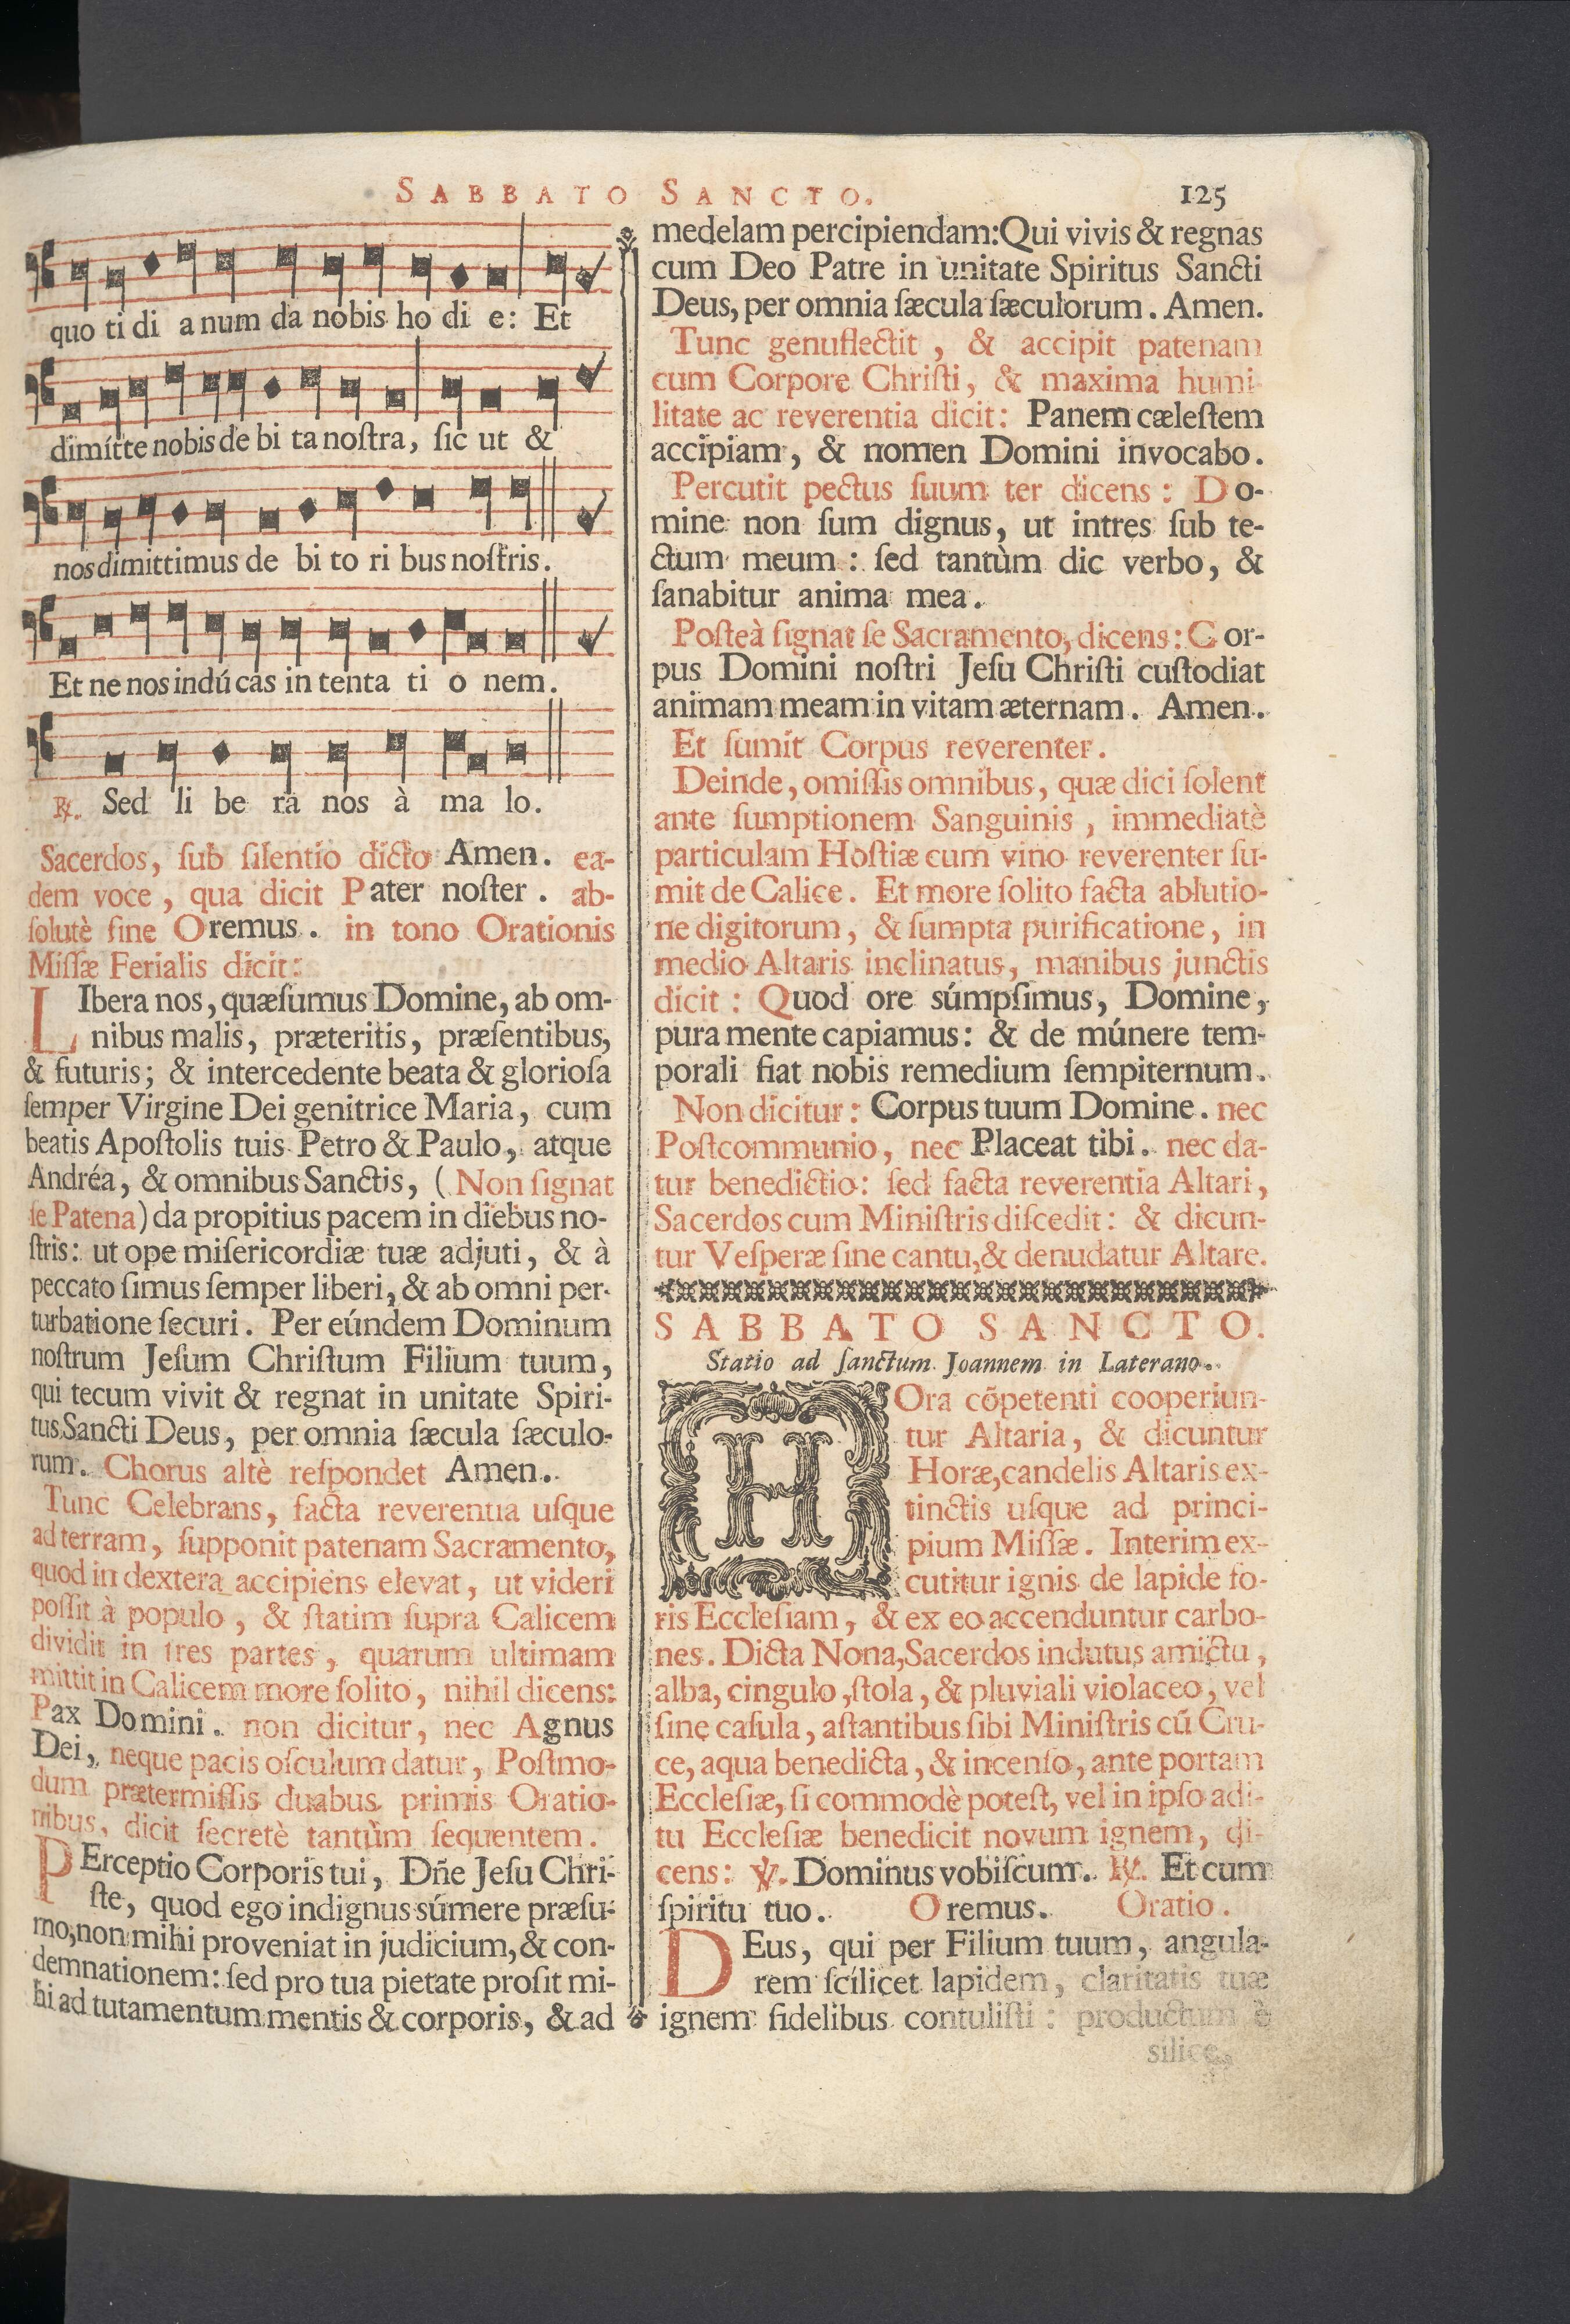 SABBATO SANCTO. 125
quo ti di a num da nobis ho di e: Et
dimítte nobis de bi ta noſtra, ſic ut &
nos dimittimus de bi to ri bus noſtris.
Et ne nos indúcas in tenta ti o nem.
℟. Sed li be ra nos à ma lo.
Sacerdos, ſub ſilentio dicto Amen. ea-
dem voce, qua dicit Pater noſter. ab-
ſolutè ſine Oremus. in tono Orationis
Miſſæ Ferialis dicit:
LIbera nos, quæſumus Domine, ab om-
nibus malis, præteritis, præſentibus,
& futuris; & intercedente beata & glorioſa
ſemper Virgine Dei genitrice Maria, cum
beatis Apoſtolis tuis Petro & Paulo, atque
Andréa, & omnibus Sanctis, (Non ſignat
ſe Patena) da propitius pacem in diebus no-
ſtris: ut ope miſericordiæ tuæ adjuti, & à
peccato ſimus ſemper liberi, & ab omni per-
turbatione ſecuri. Per eúndem Dominum
noſtrum Jeſum Chriſtum Filium tuum,
qui tecum vivit & regnat in unitate Spiri-
tus Sancti Deus, per omnia ſæcula ſæculo-
rum. Chorus altè reſpondet Amen.
Tunc Celebrans, facta reverentia uſque
ad terram, ſupponit patenam Sacramento,
quod in dextera accipiens elevat, ut videri
poſſit à populo, & ſtatim ſupra Calicem
dividit in tres partes, quarum ultimam
mittit in Calicem more ſolito, nihil dicens:
Pax Domini. non dicitur, nec Agnus
Dei, neque pacis oſculum datur, Poſtmo-
dum prætermiſſis duabus primis Oratio-
nibus, dicit ſecretè tantùm ſequentem.
PErceptio Corporis tui, Dñe Jeſu Chri-
ſte, quod ego indignus súmere præſu-
mo, non mihi proveniat in judicium, & con-
demnationem: ſed pro tua pietate proſit mi-
hi ad tutamentum mentis & corporis, & ad
medelam percipiendam: Qui vivis & regnas
cum Deo Patre in unitate Spiritus Sancti
Deus, per omnia ſæcula ſæculorum. Amen.
Tunc genuflectit, & accipit patenam
cum Corpore Chriſti, & maxima humi-
litate ac reverentia dicit: Panem cæleſtem
accipiam, & nomen Domini invocabo.
Percutit pectus ſuum ter dicens: Do-
mine non ſum dignus, ut intres ſub te-
ctum meum: ſed tantùm dic verbo, &
ſanabitur anima mea.
Poſteà ſignat ſe Sacramento, dicens: Cor-
pus Domini noſtri Jeſu Chriſti cuſtodiat
animam meam in vitam æternam. Amen.
Et ſumit Corpus reverenter.
Deinde, omiſſis omnibus, quæ dici ſolent
ante ſumptionem Sanguinis, immediatè
particulam Hoſtiæ cum vino reverenter ſu-
mit de Calice. Et more ſolito facta ablutio-
ne digitorum, & ſumpta purificatione, in
medio Altaris inclinatus, manibus junctis
dicit: Quod ore súmpſimus, Domine,
pura mente capiamus: & de múnere tem-
porali fiat nobis remedium ſempiternum.
Non dicitur: Corpus tuum Domine. nec
Poſtcommunio, nec Placeat tibi. nec da-
tur benedictio: ſed facta reverentia Altari,
Sacerdos cum Miniſtris diſcedit: & dicun-
tur Veſperæ ſine cantu, & denudatur Altare.
SABBATO SANCTO.
Statio ad ſanctum Joannem in Laterano.
HOra cõpetenti cooperiun-
tur Altaria, & dicuntur
Horæ, candelis Altaris ex-
tinctis uſque ad princi-
pium Miſſæ. Interim ex-
cutitur ignis de lapide fo-
ris Eccleſiam, & ex eo accenduntur carbo-
nes. Dicta Nona, Sacerdos indutus amictu,
alba, cingulo, ſtola, & pluviali violaceo, vel
ſine caſula, aſtantibus ſibi Miniſtris cũ Cru-
ce, aqua benedicta, & incenſo, ante portam
Eccleſiæ, ſi commodè poteſt, vel in ipſo adi-
tu Eccleſiæ benedicit novum ignem, di-
cens: ℣. Dominus vobiſcum. ℟. Et cum
ſpiritu tuo. Oremus. Oratio.
DEus, qui per Filium tuum, angula-
rem ſcílicet lapidem, claritatis tuæ
ignem fidelibus contuliſti: productum è
silice,